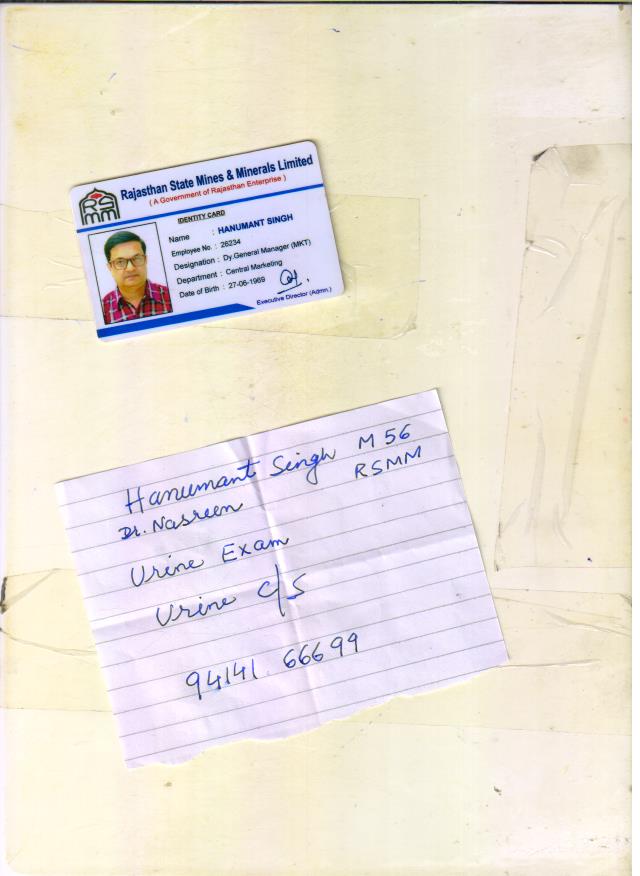 RS
MM
Rajasthan State Mines & Minerals Limited
( A Government of Rajasthan Enterprise )
IDENTITY CARD
Name : HANUMANT SINGH
Employee No. : 26234
Designation : Dy.General Manager (MKT)
Department : Central Marketing
Date of Birth : 27-06-1969
Executive Director (Admn.)
Hanumant Singh M 56
Dr. Nasreen RSMM
Urine Exam
Urine C/S
94141 66699